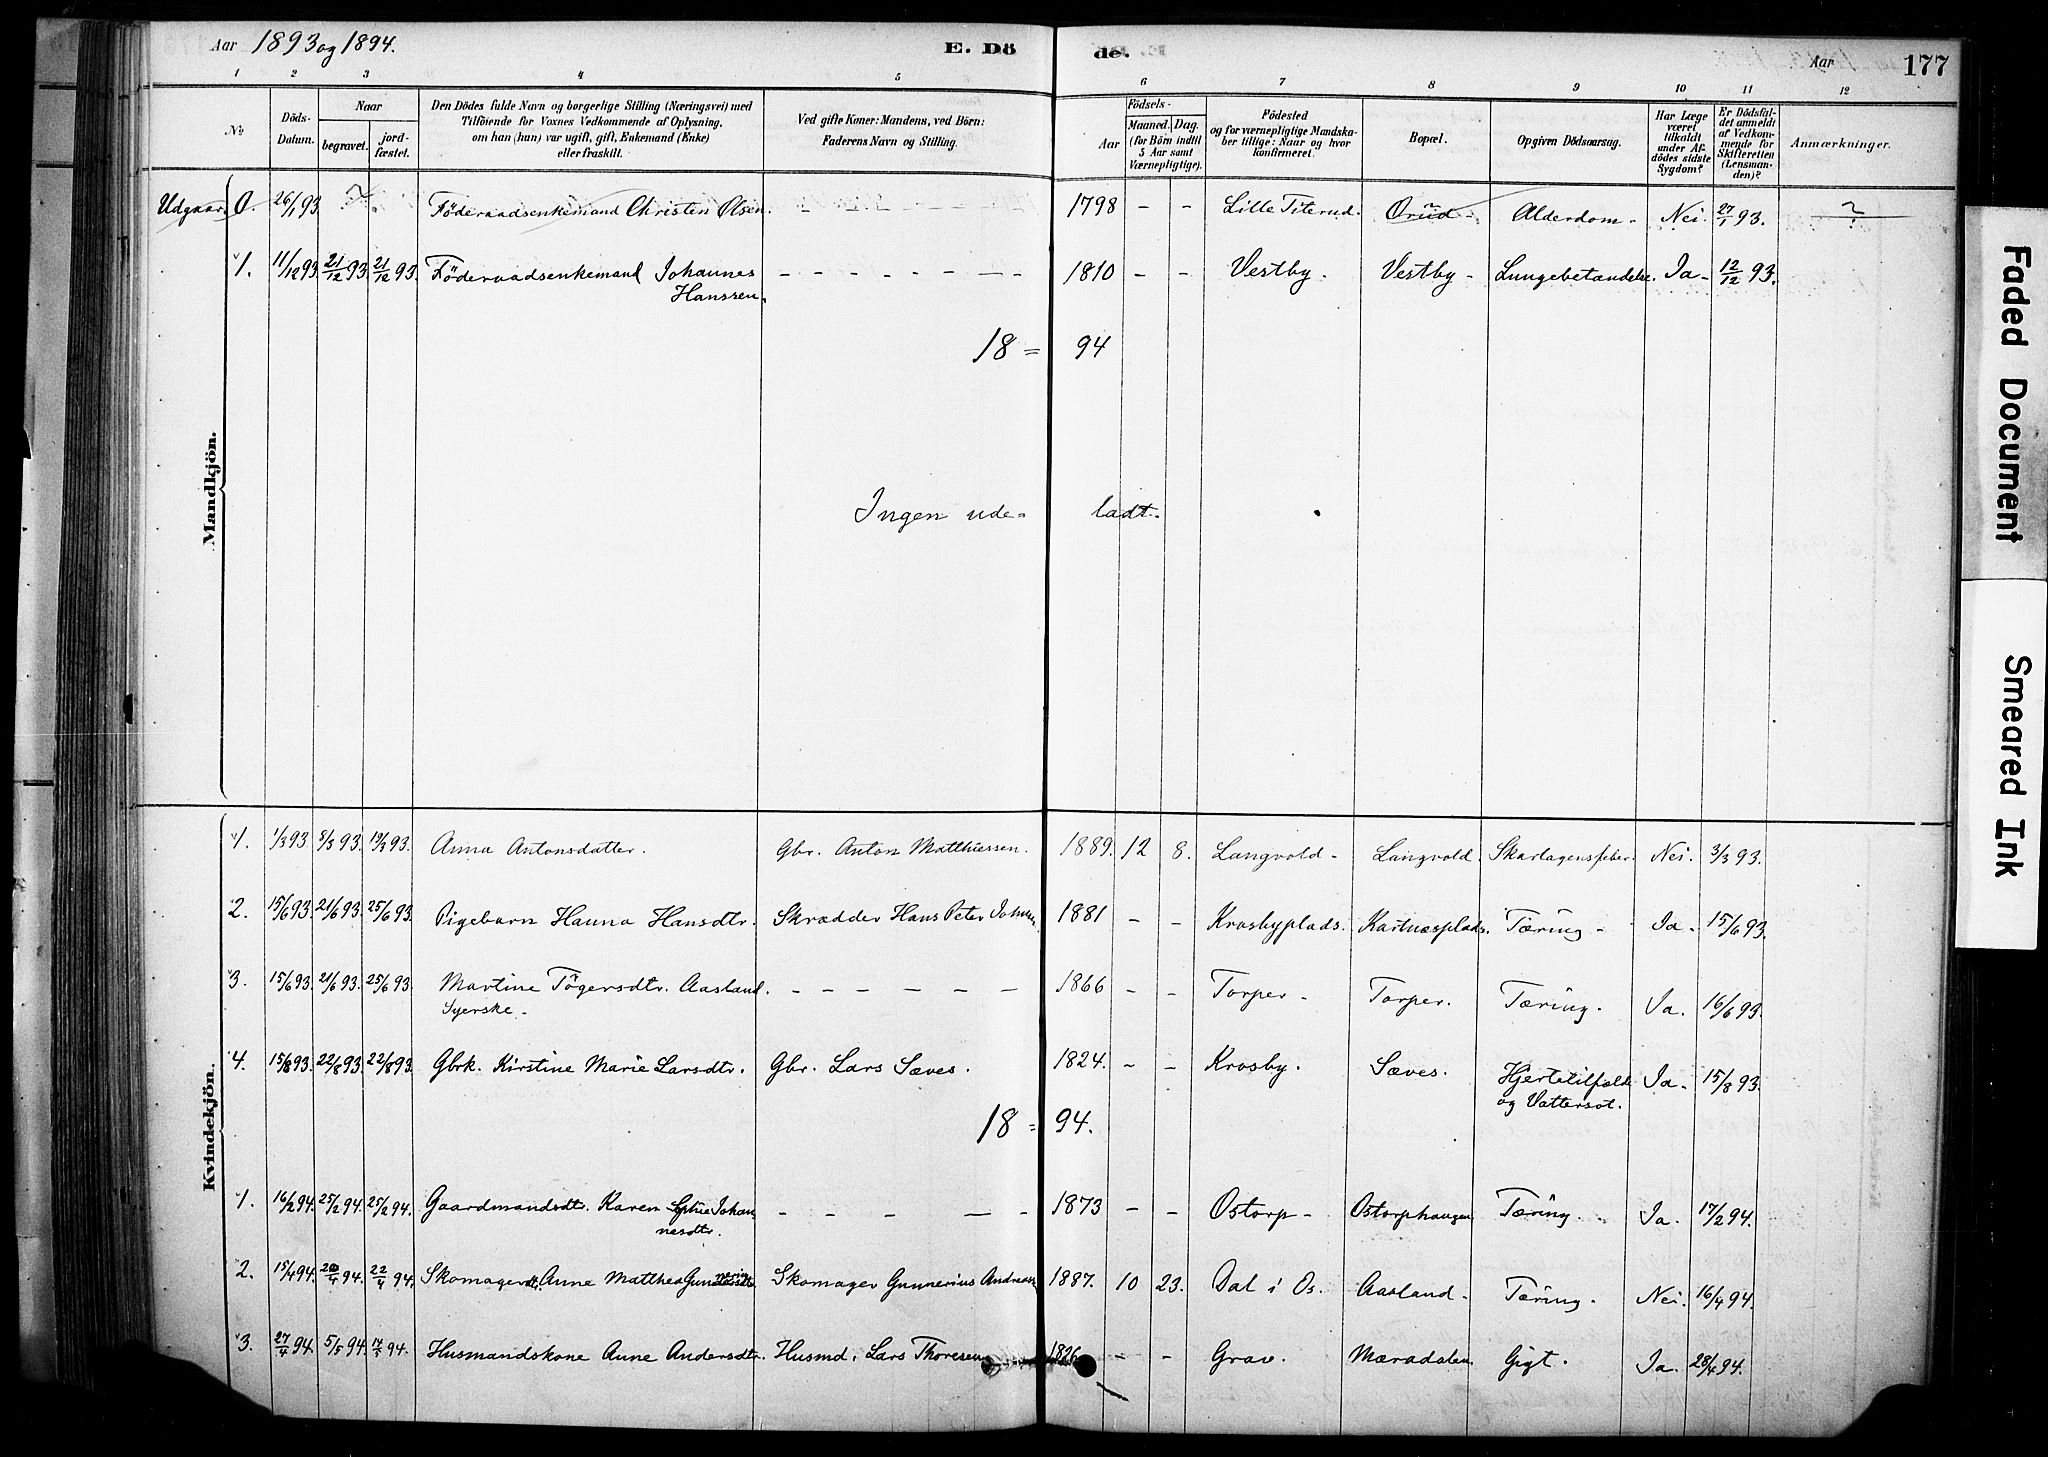 Aar 1893 og 1894.
E. Dö
de.
Aar
177
1 2 3 4 5 6 7 8 9 10 11 12
No
Döds-
Datum.
Naar
begravet.
jord-
fæstet.
Den Dödes fulde Navn og borgerlige Stilling (Næringsvei) med
Tilföiende for Voxnes Vedkommende af Oplysning,
om han (hun) var ugift, gift, Enkemand (Enke)
eller fraskilt.
Ved gifte Koner: Mandens, ved Börn:
Faderens Navn og Stilling.
Födsels-
Aar
Maaned. Dag.
(for Börn indtil
5 Aar samt
Værnepligtige).
Födested
og for værnepligtige Mandska-
ber tillige: Naar og hvor
konfirmeret.
Bopæl.
Opgiven Dödsaarsag.
Har Læge
været
tilkaldt
under Af-
dödes sidste
Sygdom?
Er Dödsfal-
det anmeldt
af Vedkom-
mende for
Skifteretten
(Lensman-
den)?
Anmærkninger.
Udgaar. 0. 26/1 93. Föderaadsenkemand Christen Olsen. – – – – – – 1798 – – Lille Titerud. Orud – Alderdom – Nei. 27/1 93.
1. 11/12 93. 21/12 93. 21/12 93. Föderaadsenkemand Johannes – – – – – – 1810 – – Vestby. Vestby – Lungebetændelse. Ja – 12/12 93.
Hanssen.
18 = 94
Mandkjön.
Ingen ude- ladt.
1. 1/3 93. 8/3 93. 19/3 93. Anna Antonsdatter. Gbr. Anton Matthiessen. 1889. 12 8. Langvold – Langvold. Skarlagensfeber. Nei. 3/3 93.
2. 15/6 93. 21/6 93. 25/6 93. Pigebarn Hanna Hansdtr. Skrædder Hans Peter 1881 – – Krosbyplads. Kartnæsplads. Tæring – Ja – 15/6 93.
3. 15/6 93. 21/6 93. 25/6 93. Martine Tögersdtr. Aasland. – – – – – – 1866 – – Torper – Torper. Tæring. Ja. 16/6 93.
Syerske –
4. 15/8 93. 22/8 93. 22/8 93. Gbrk. Kirstine Marie Larsdtr. Gbr. Lars Sæves. 1824. – – Krosby. Sæves. Hjertetilfælde Ja – 15/8 93.
og Vattersot.
18 = 94.
Kvindekjön.
1. 16/2 94. 25/2 94. 25/2 94. Gaardmandsdtr. Karen Sofie Johan- – – – – – 1873 – – Ostorp – Ostorphaugen Tæring. Ja. 17/2 94.
nesdtr.
2. 15/4 94. 20/4 94. 22/4 94. Anne Matthea Skomager Gunnerius 1887. 10 23. Dal i Os. Aasland – Tæring. Nei. 16/4 94.
3. 27/4 94. 5/5 94. 17/5 94. Husmandskone Anne Andersdtr. Husmd. Lars Thoresen 1826 – – Grav. Mæradalen Gigt. Ja. 28/4 94.
Faded Document
Smeared Ink